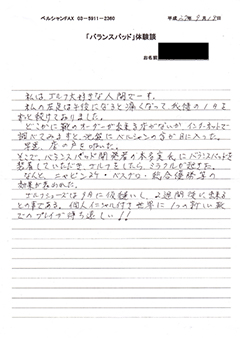 ベルシャンFAX 03-5911-2360
平成25年9月19日
「バランスパッド」体験談
お名前
私は、ゴルフ大好きな人間で一す。
私の左足は半後になると痛くなって我慢の1カ
れと続けておりました。
どこかに靴のオーダーが出来る店がないか インターネットで
調べてみますと、池袋にベルシャンの名が目に入った。
早速、店の戸を叩いた。
そこで、バランスパッド開発者の本多克氏にバランスパッドを
装着していただき、ゴルフをしたらミラクルが起きた。
なんと、ニャピン2ケ・ベスグロ・総合優勝等の
効果が表われた。
ゴルフシューズは9月に依頼し、2週間後に出来る
との事である。個人イニシャル付き世界に1つの新しい靴
でのプレイが待ち遠しい!!